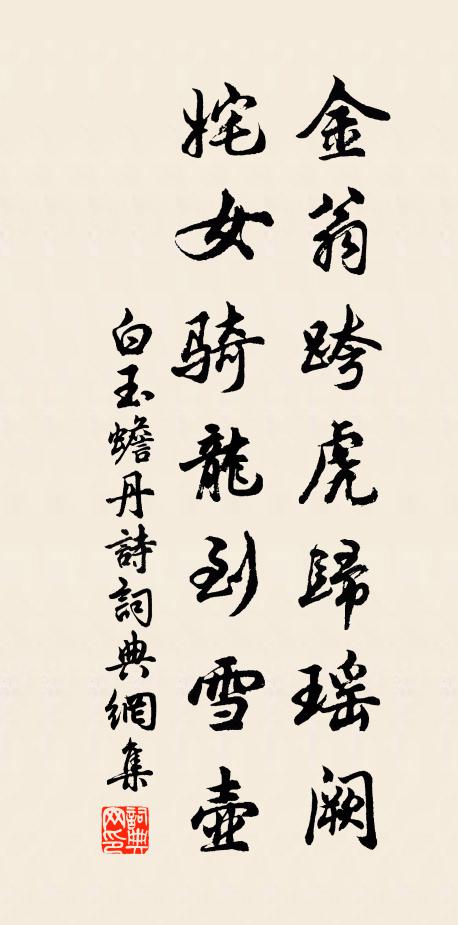 金翁跨虎歸瑶闕
姹女騎龍到雪壺
白玉蟾丹詩詞典網集
詞典网印